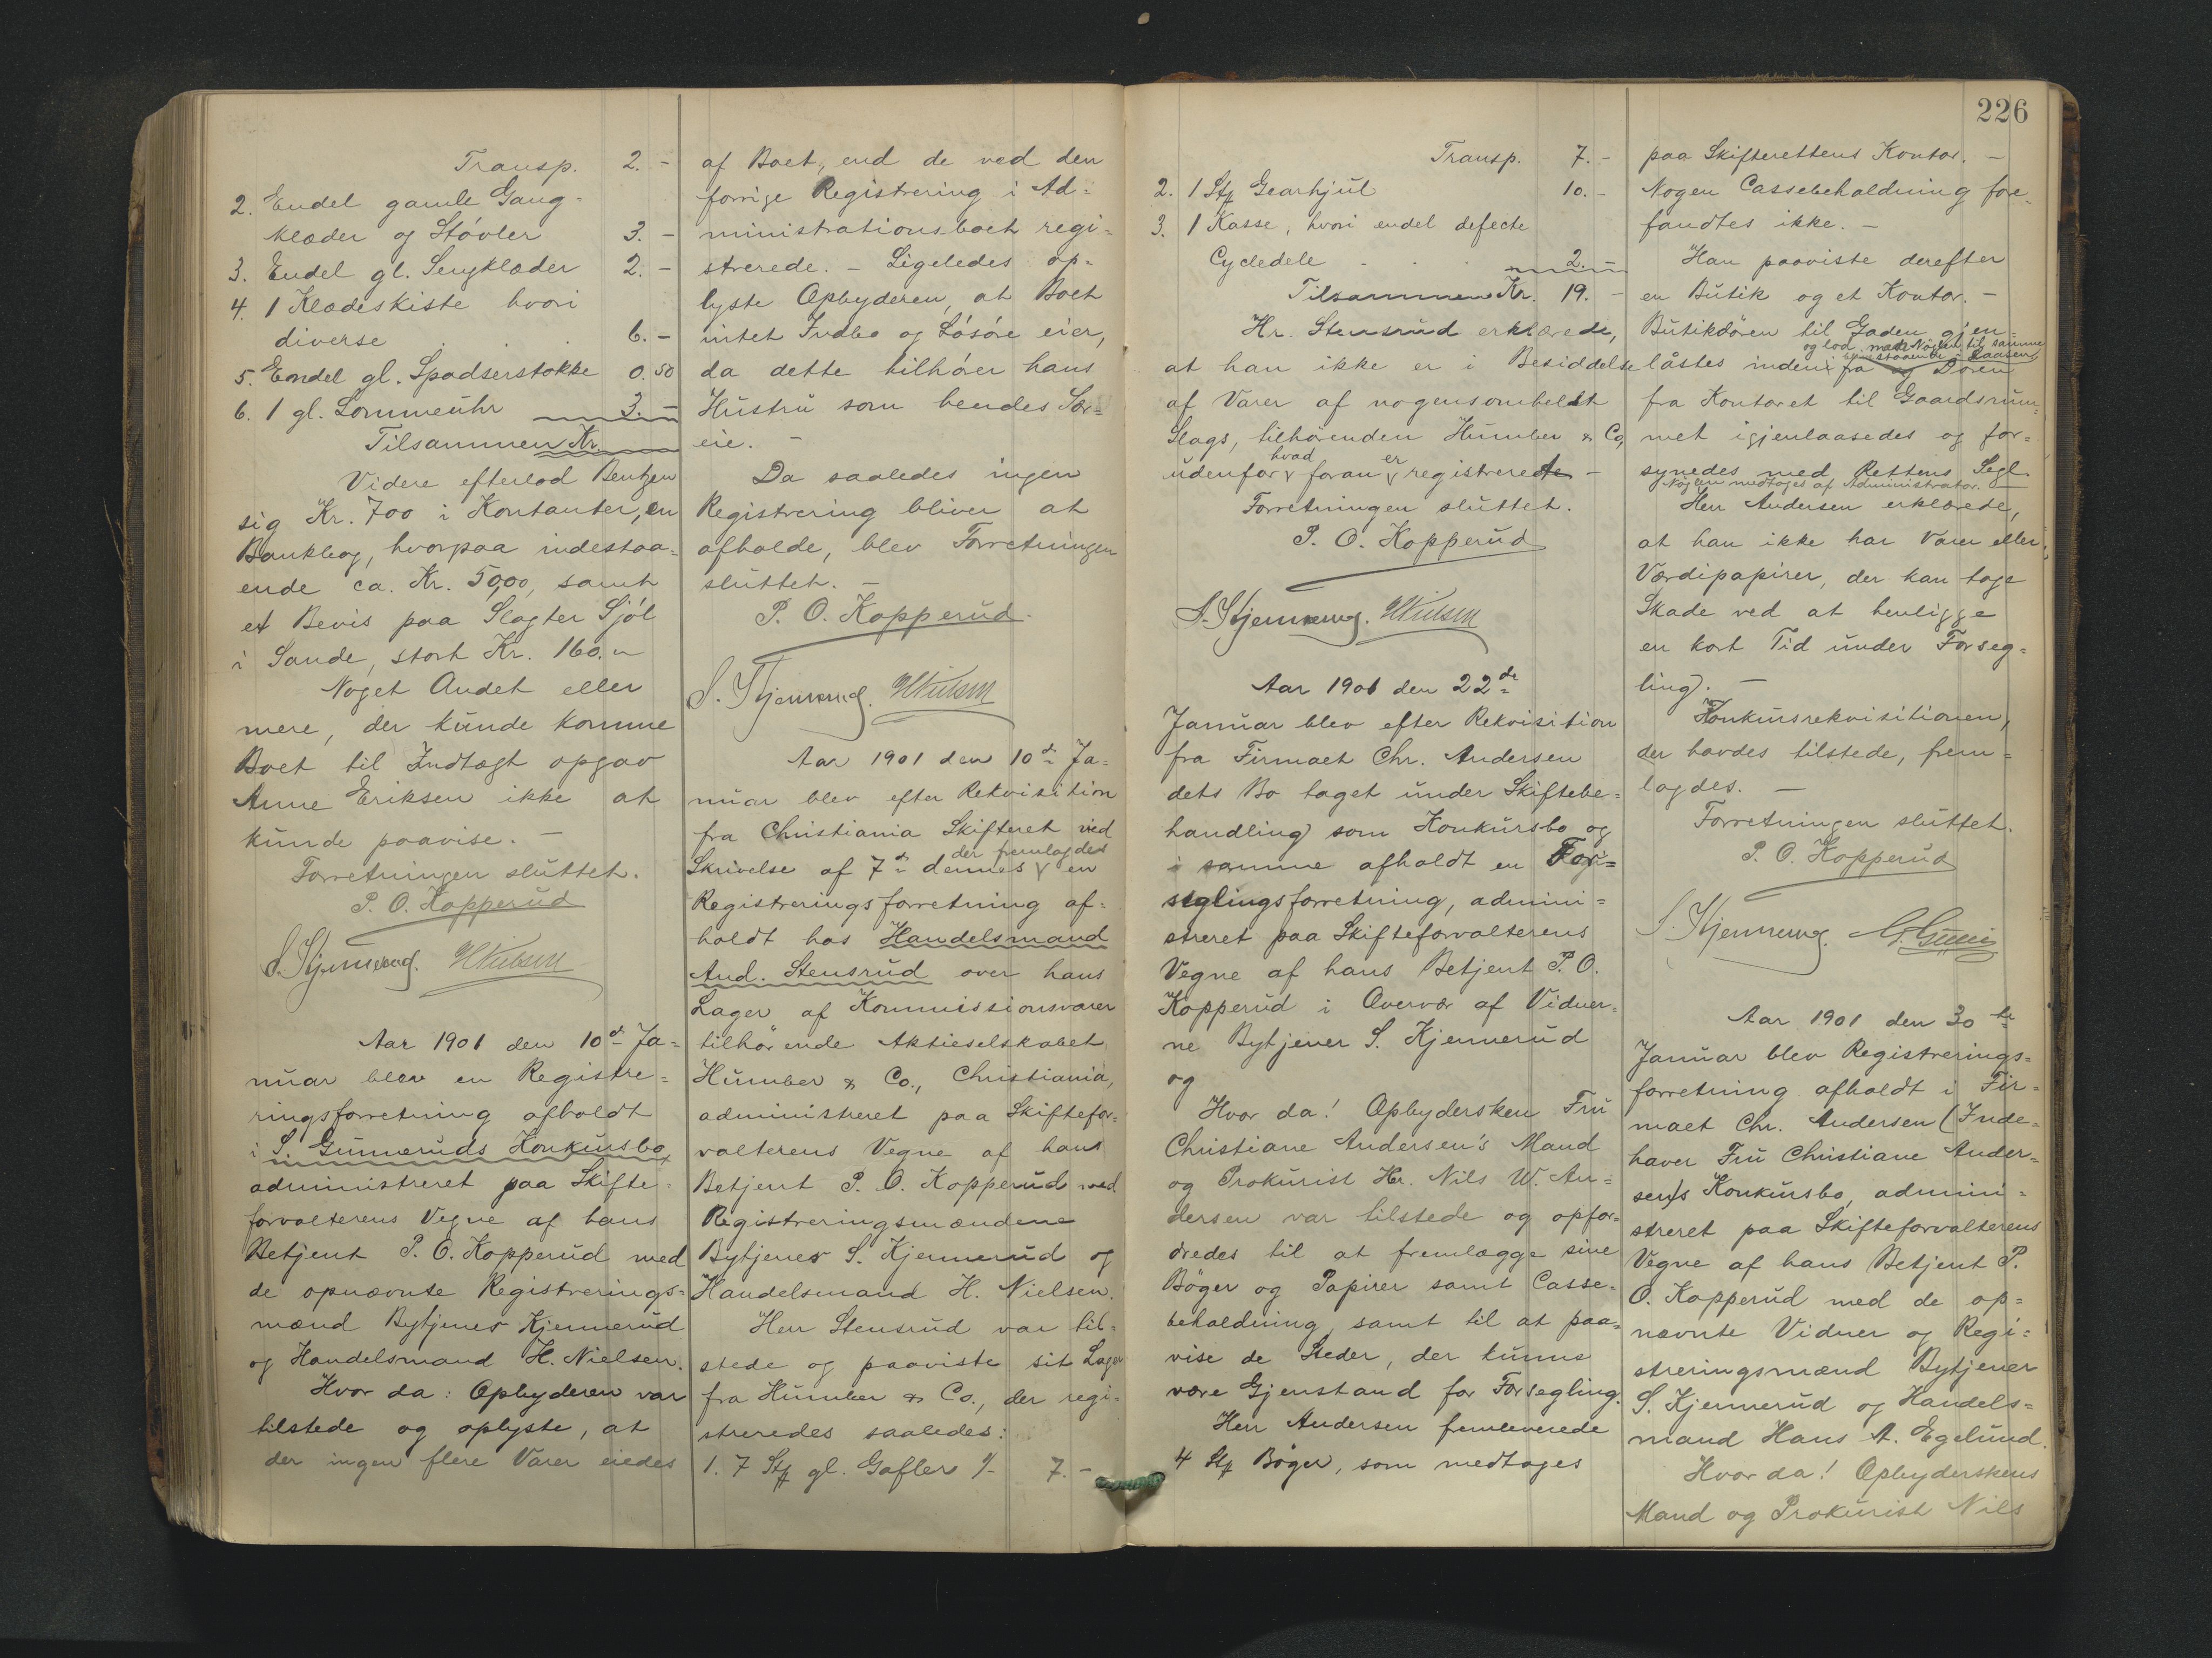 Transp. 2.-
2. Endel gamle Gang-
klæder og Støvler 3.-
3. Endel gl. Sengklæder 2.-
4. 1 Klædeskiste hvori
diverse . . 6.-
5. Endel gl. Spadserstokke 0.50
6. 1 gl. Lommeuhr 3.-
Tilsammen Kr.
Videre efterlod Bentzen
sig Kr. 700 i Kontanter, en
Bankbog, hvorpaa indestaa-
ende ca. Kr. 50,00, samt
et Bevis paa Slagter Sjøl
i Sande, stort Kr. 160.
Noget Andet eller
mere, der kunde komme
Boet til Indtægt opgav
Anne Eriksen ikke at
kunde paavise. -
Forretningen sluttet.
P. O. Kopperud
S. Kjennerud. HNielsen
Aar 1901 den 10de Ja-
nuar blev en Registre-
ringsforretning afholdt
i S. Gunneruds Konkursbo,
administreret paa Skifte-
forvalterens Vegne af hans
Betjent P. O. Kopperud med
de opnævnte Registrerings-
mænd Bytjener Kjennerud
og Handelsmand H. Nielsen.
Hvor da: Opbyderen var
tilstede og oplyste, at
der ingen flere Varer eiedes
af Boet, end de ved den
forrige Registrering i Ad-
ministrationsboet regi-
strerede. - Ligeledes op-
lyste Opbyderen, at Boet
intet Indbo og Løsøre eier,
da dette tilhører hans
Hustru som hendes Sær-
eie. -
Da saaledes ingen
Registrering bliver at
afholde, blev Forretningen
sluttet. -
P. O. Kopperud.
S. Kjennerud. HNielsen
Aar 1901 den 10de Ja-
nuar blev efter Rekvisition
fra Christiania Skifteret ved
der fremlagdes
Skrivelse af 7de dennes en
Registreringsforretning af-
holdt hos Handelsmand
And. Stensrud over hans
Lager af Kommissionsvarer
tilhørende Aktieselskabet
Humber & Co., Christiania,
administreret paa Skiftefor-
valterens Vegne af hans
Betjent P. O. Kopperud med
Registreringsmændene
Bytjener S. Kjennerud og
Handelsmand H. Nielsen.
Herr Stensrud var til-
stede og paaviste sit Lager
fra Humber & Co., der regi-
streredes saaledes:
1. 7 Stk gl. Gafler 1/- 7.-
226
Transp. 7.-
2. 1 Stk Gearhjul 10.-
3. 1 Kasse, hvori endel defecte
Cycledele . . . 2.-
Tilsammen Kr. 19.-
Hr. Stensrud erklærede,
at han ikke er i Besiddelse
af Varer af nogensomhelst
Slags, tilhørenden Humber & Co,
hvad er
udenfor foran registrerede -
Forretningen sluttet.
P. O. Kopperud
S. Kjennerud. HNielsen
Aar 1901 den 22de
Januar blev efter Rekvisition
fra Firmaet Chr. Andersen
dets Bo taget under Skiftebe-
handling som Konkursbo og
i samme afholdt en For-
seglingsforretning, admini-
streret paa Skifteforvalterens
Vegne af hans Betjent P. O.
Kopperud i Overvær af Vidner-
ne Bytjener S. Kjennerud
og
Hvor da! Opbydersken Fru
Christiane Andersen's Mand
og Prokurist Hr. Nils W. An-
dersen var tilstede og opfor-
dredes til at fremlægge sine
Bøger og Papirer samt Casse-
beholdning samt til at paa-
vise de Steder, der kunne
være Gjenstand for Forsegling.
Herr Andersen fremleverede
4 Stk Bøger, som medtoges
paa Skifterettens Kontor. -
Nogen Cassebeholdning fore-
fandtes ikke. -
Han paaviste derefter
en Butik og et Kontor. -
Butikdøren til Gaden gjen-
og lod Nøglen til samme
staaende i Laasen
låstes indenifra og Døren
fra Kontoret til Gaardsrum-
met igjenlaasedes og for-
synedes med Rettens Segl.
Nøglen medtoges af Administrator.
Herr Andersen erklærede,
at han ikke har Varer eller
Værdipapirer, der kan tage
Skade ved at henligge
en kort Tid under Forseg-
ling. -
Konkursrekvisitionen,
der havdes tilstede, frem-
lagdes. -
Forretningen sluttet.
P. O. Kopperud
S. Kjennerud.
Aar 1901 den 30te
Januar blev Registrerings-
forretning afholdt i Fir-
maet Chr. Andersen (Inde-
haver Fru Christiane Ander-
sen)s Konkursbo, admini-
streret paa Skifteforvalterens
Vegne af hans Betjent P.
O. Kopperud med de op-
nævnte Vidner og Regi-
streringsmænd Bytjener
S. Kjennerud og Handels-
mand Hans A. Egelund.
Hvor da! Opbyderskens
Mand og Prokurist Nils